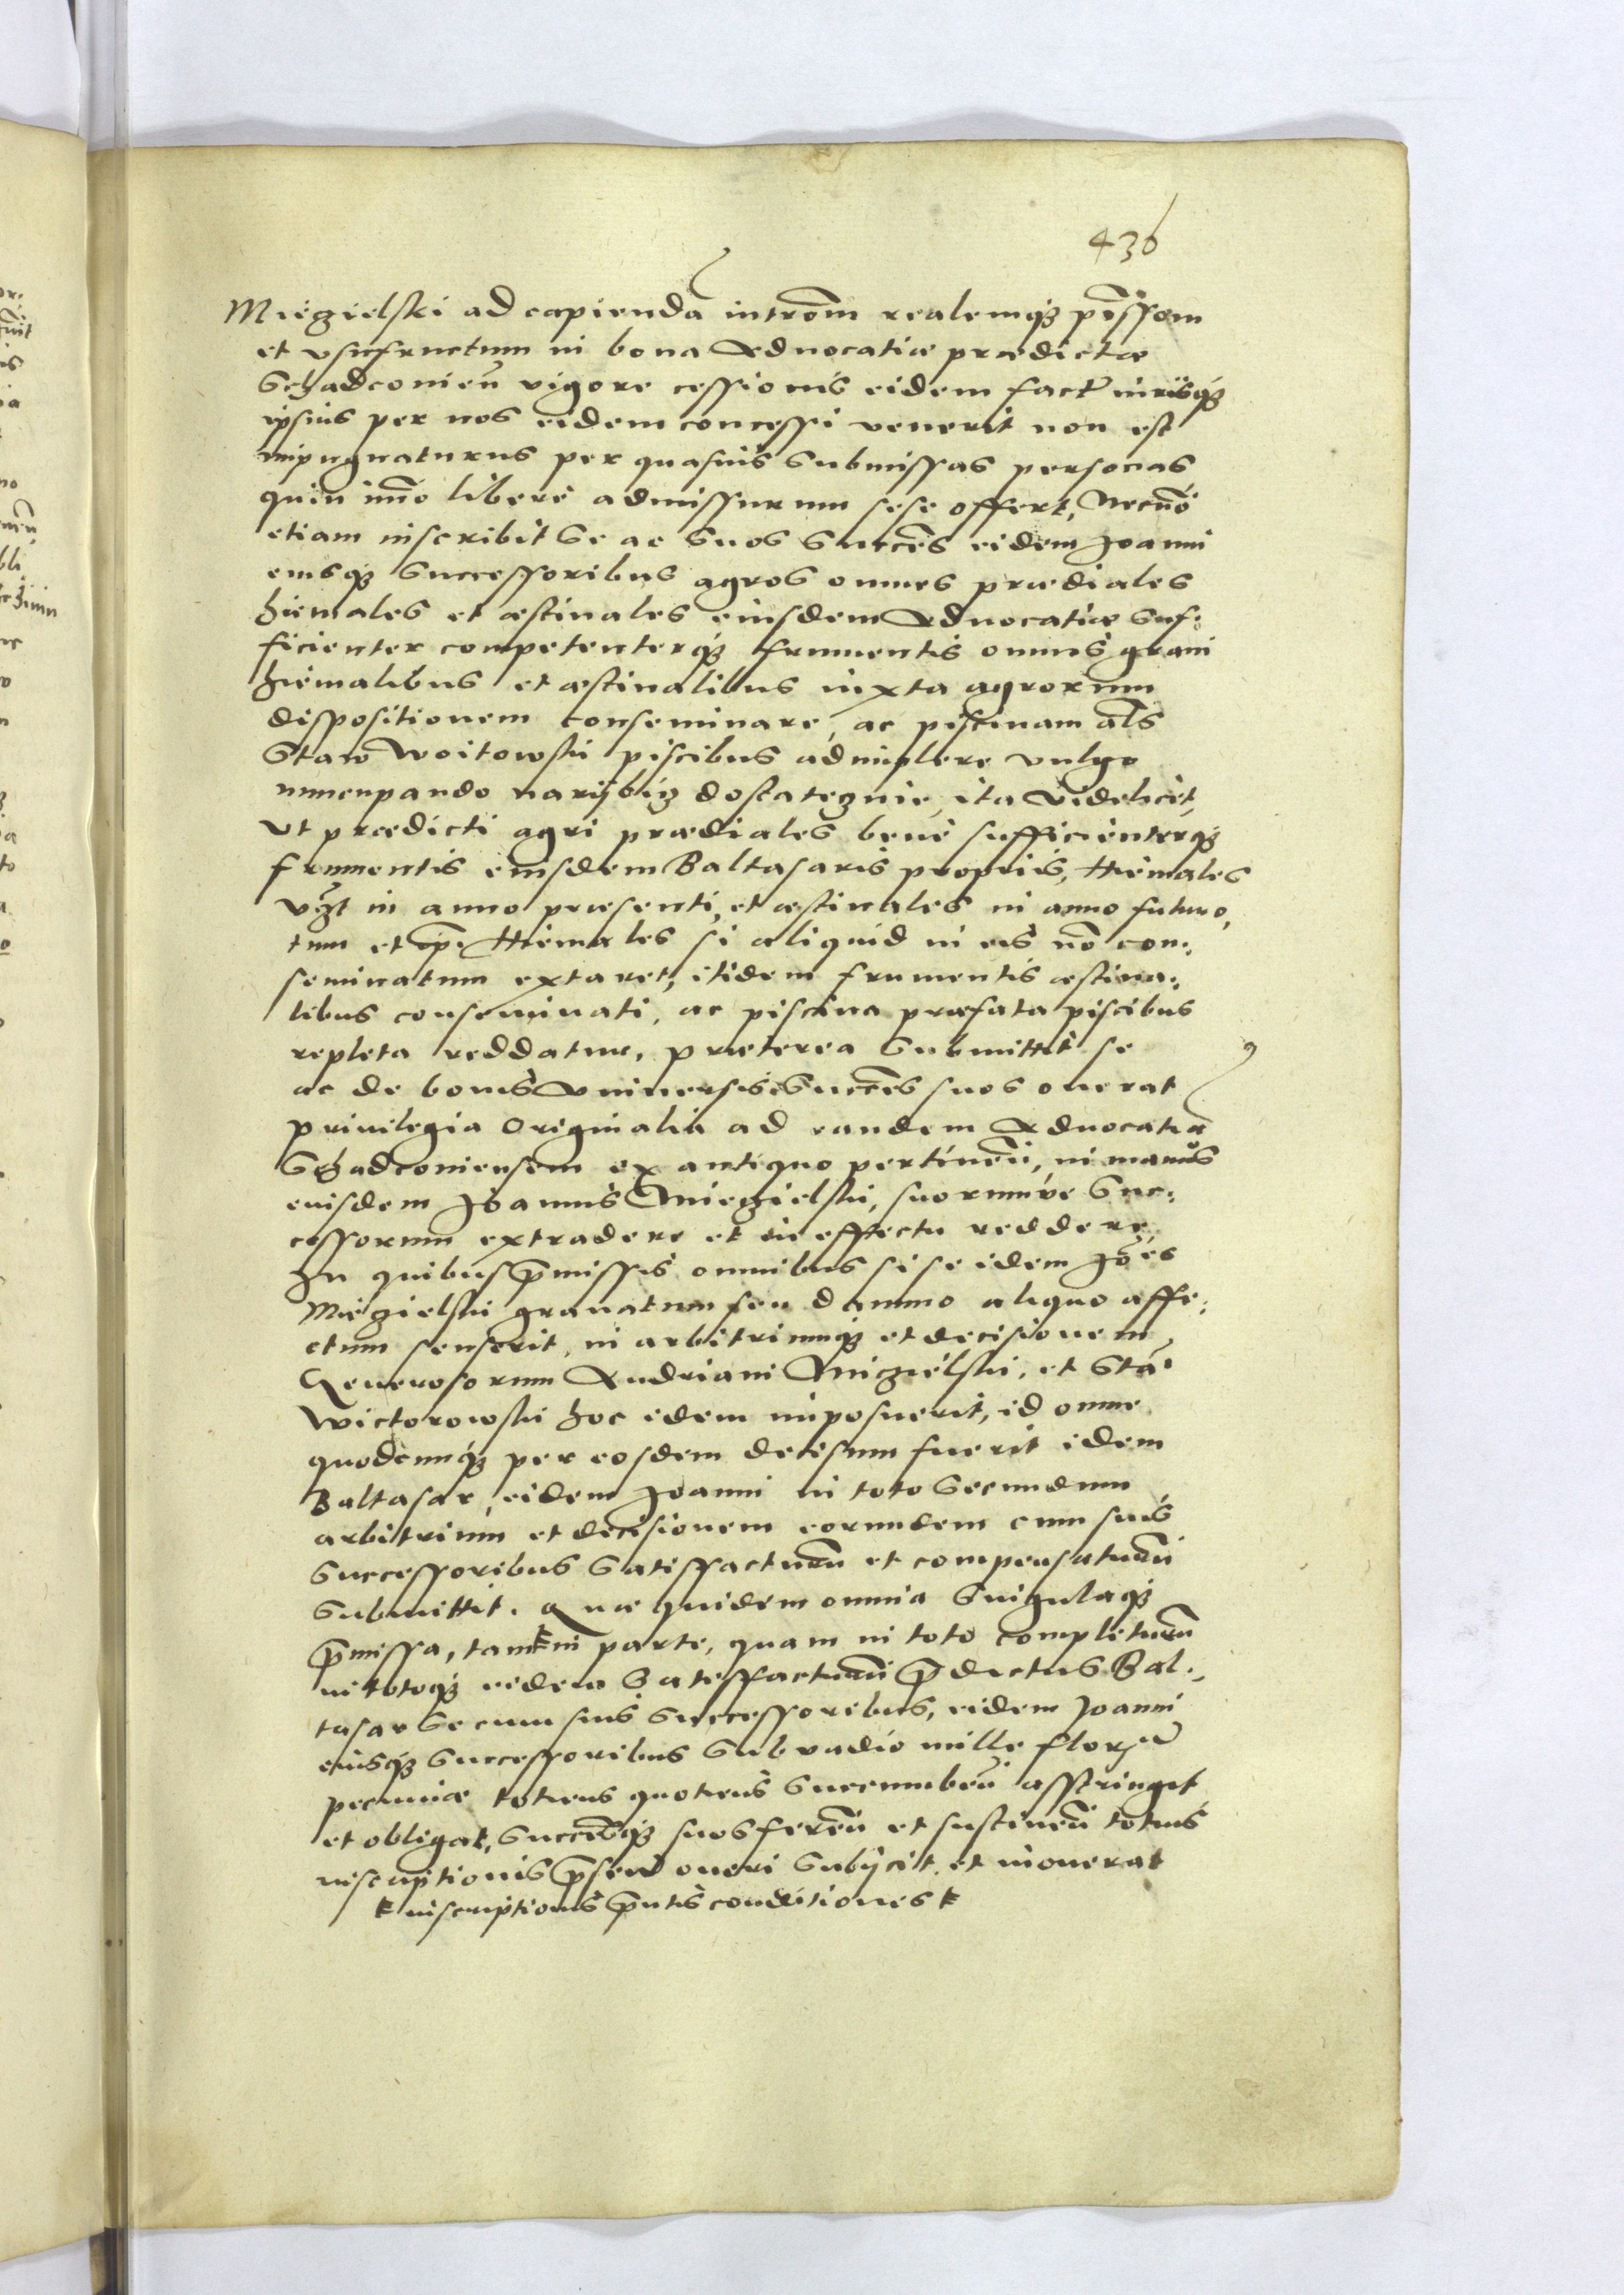 436
Mięgielski ad capiendã intrõm realemq₃ põssõem
et vsufructum in bona Aduocatiæ prædictæ
Schadconieñ vigore cessionis eidem factæ iurisq₃
ipsius per nos eidem concessi venerit non est
impugnaturus per quasuis submissas personas
quin imõ liberè admissurum sese offert, Necnõ
etiam inscribit se ac suos Succẽs eidem Joanni
eiusq₃ Successoribus agros omnes prædiales
hiemales et æstiuales eiusdem Aduocatiæ Suf-
ficienter competenterq₃ frumentis omnis grani
hiemalibus et æstiualibus iuxta agrorum
dispositionem conseminare, ac piscinam als̃
Staw Woitowski piscibus adimplere vulgo
nuncupando narijbię dostatęgnie, ita videlicet,
Vt prædicti agri prædiales benè sufficienterq₃
frumentis eiusdem Baltasaris proprijs, Hiemales
vz̃t in anno præsenti, et æstiuales in anno futuro,
tum et Hiemales si aliquid in eis nõ con-
seminatum extaret, itidem frumentis æstiua-
libus conseminati, ac piscina præfata piscibus
repleta reddatur, præterea Submittit se
ac de bonis Vniuersis Succẽs suos onerat
priuilegia Originalia ad eandem Aduocatiã
Schadconiensem ex antiquo pertineñ, in manus
eiusdem Joannis Miegielski, suorumve Suc-
cessorum extradere et in effectu reddere
In quibus p̃missis omnibus si se idem Joẽs
Miegielski grauatum seu damno aliquo affe-
ctum senserit, in arbitriumq₃ et decisionem
Generosorum Andriani Miegielski, et Sta⸗
Wictorowski hoc idem imposuerit, id omne
quodcunq₃ per eosdem decisum fuerit idem
Baltasar, eidem Joanni in toto Secundum
arbitrium et decisionem eorundem cum suis
Successoribus Satisfacturũ et compensaturũ
Submittit. Quæ quidem omnia Singulaq₃
p̃missa, tam in parte, quam in toto completurũ
in totoq₃ eidem Satisfacturũ p̃dictus Bal-
tasar Se cum suis Successoribus, eidem Joanni
eiusq₃ Successoribus Sub vadio mille flor.
pecuniæ toties quoties Succumbeñ asstringit
et obligat, Succẽsq₃ suos fereñ et sustineñ totius
inscriptionis oneri Subijcit et inonerat
inscriptionis p̃ntis conditiones